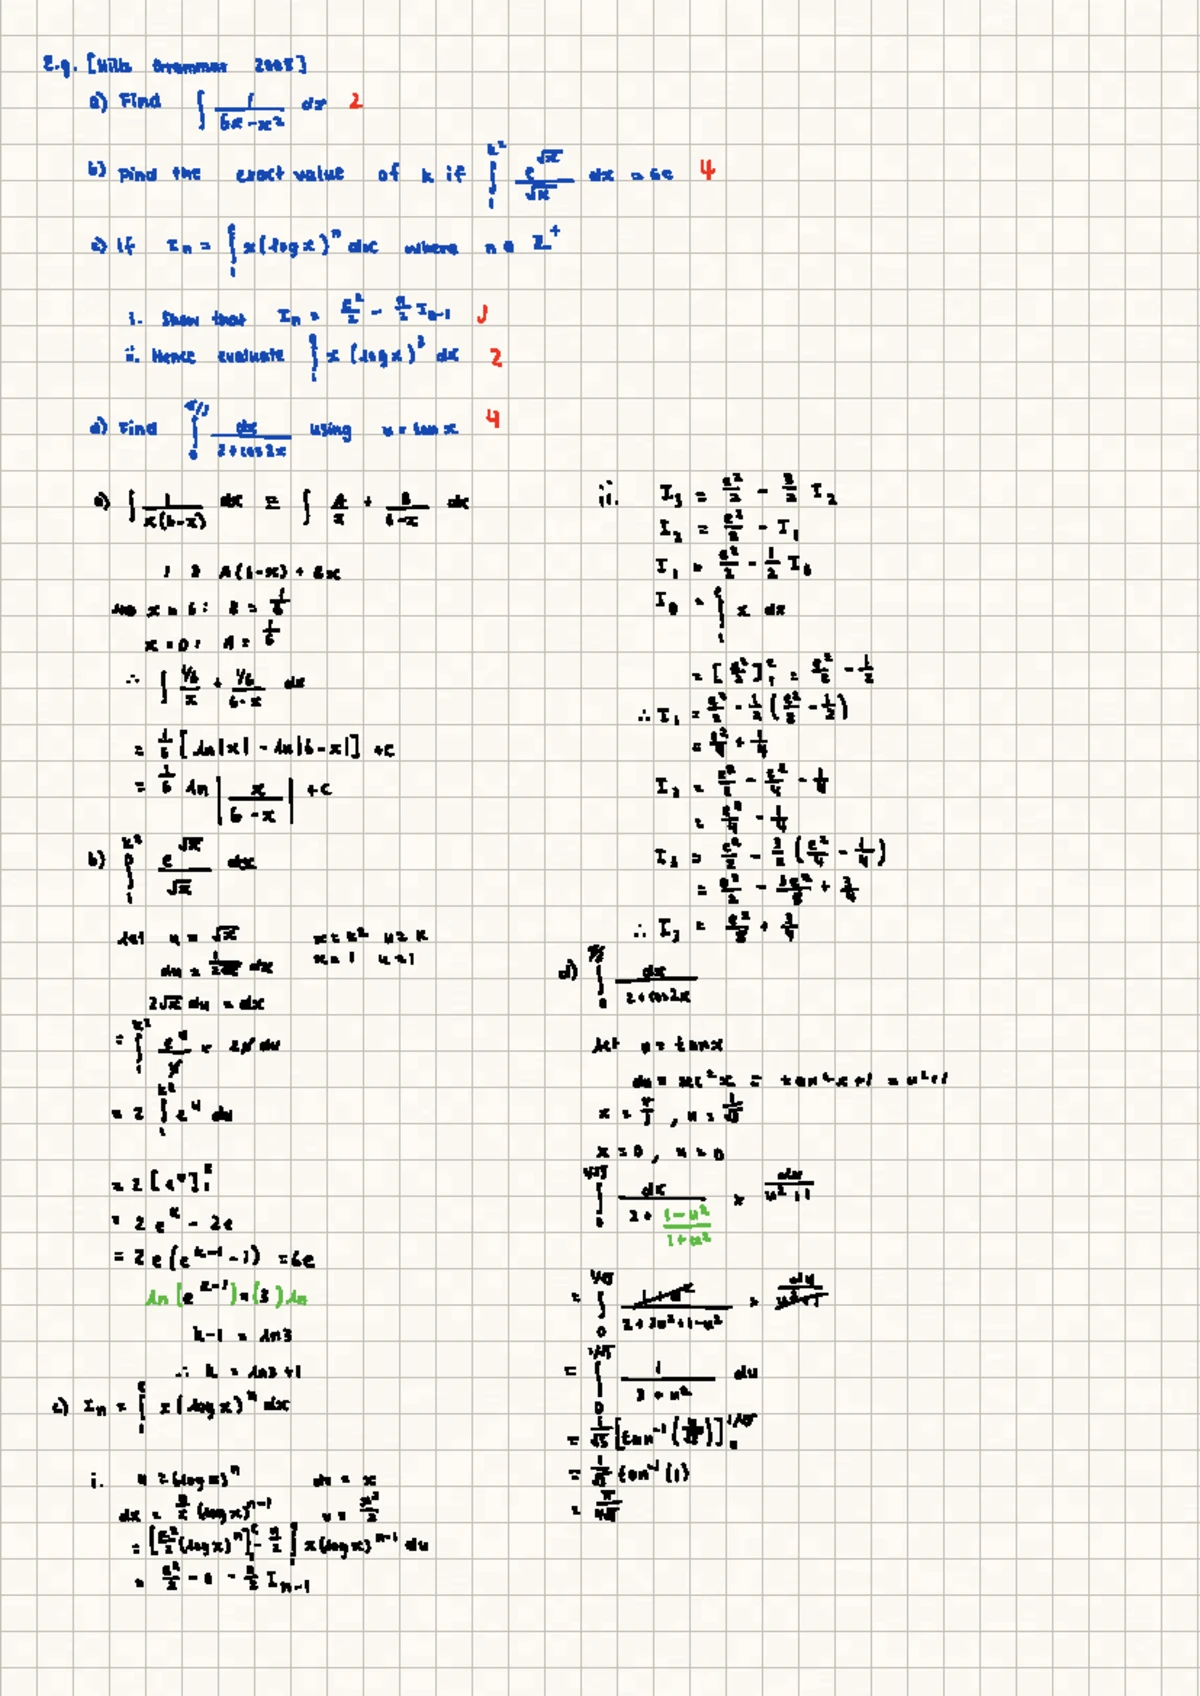 E.g. [Hills Grammar 2008]
a) Find ∫ 1/(6x-x²) dx 2
b) Find the exact value of k if ∫₁^k² e^√x/√x dx = 6e 4
c) If Iₙ = ∫₁^e x(log x)ⁿ dx where n ∈ Z⁺
i. Show that Iₙ = e²/2 - n/2 Iₙ₋₁ 3
ii. Hence evaluate ∫₁^e x (log x)³ dx 2
d) Find ∫₀^π/3 dx/(2+cos2x) using u = tan x 4
a) ∫ 1/(x(6-x)) dx ≡ ∫ A/x + B/(6-x) dx
1 ≡ A(6-x) + Bx
x = 6: B = 1/6
x = 0: A = 1/6
∴ ∫ (1/6)/x + (1/6)/(6-x) dx
= 1/6 [ln|x| - ln|6-x|] + c
= 1/6 ln |x/(6-x)| + c
b) ∫₁^k² e^√x/√x dx
let u = √x x = k² u = k
du = 1/(2√x) dx x = 1 u = 1
2√x du = dx
= ∫₁^k² e^u/u × 2u du
= 2 ∫₁^k² e^u du
= 2 [e^u]₁^k
= 2e^k - 2e
= 2e(e^(k-1) - 1) = 6e
ln(e^(k-1)) = (3) ln
k-1 = ln3
∴ k = ln3 + 1
c) Iₙ = ∫₁^e x(log x)ⁿ dx
i. u = (log x)ⁿ dv = x
dx = n/x (log x)ⁿ⁻¹ v = x²/2
= [x²/2 (log x)ⁿ]₁^e - n/2 ∫₁ x(log x)ⁿ⁻¹ du
= e²/2 - 0 - n/2 Iₙ₋₁
ii. I₃ = e²/2 - 3/2 I₂
I₂ = e²/2 - I₁
I₁ = e²/2 - 1/2 I₀
I₀ = ∫₁^e x dx
= [x²/2]₁^e = e²/2 - 1/2
∴ I₁ = e²/2 - 1/2 (e²/2 - 1/2)
= e²/4 + 1/4
I₂ = e²/2 - e²/4 - 1/4
= e²/4 - 1/4
I₃ = e²/2 - 3/2 (e²/4 - 1/4)
= e²/2 - 3e²/8 + 3/8
∴ I₃ = e²/8 + 3/8
d) ∫₀^π/3 dx/(2+cos2x)
let u = tan x
du = sec²x = tan²x + 1 = u²+1
x = π/3, u = 1/√3
x = 0, u = 0
∫₀^1/√3 dx/(2 + (1-u²)/(1+u²)) × du/(u²+1)
= ∫₀^1/√3 (1+u²)/(2+2u²+1-u²) × du/(u²+1)
= ∫₀^1/√3 1/(3+u²) du
= 1/√3 [tan⁻¹(u/√3)]₀^1/√3
= 1/√3 tan⁻¹(1)